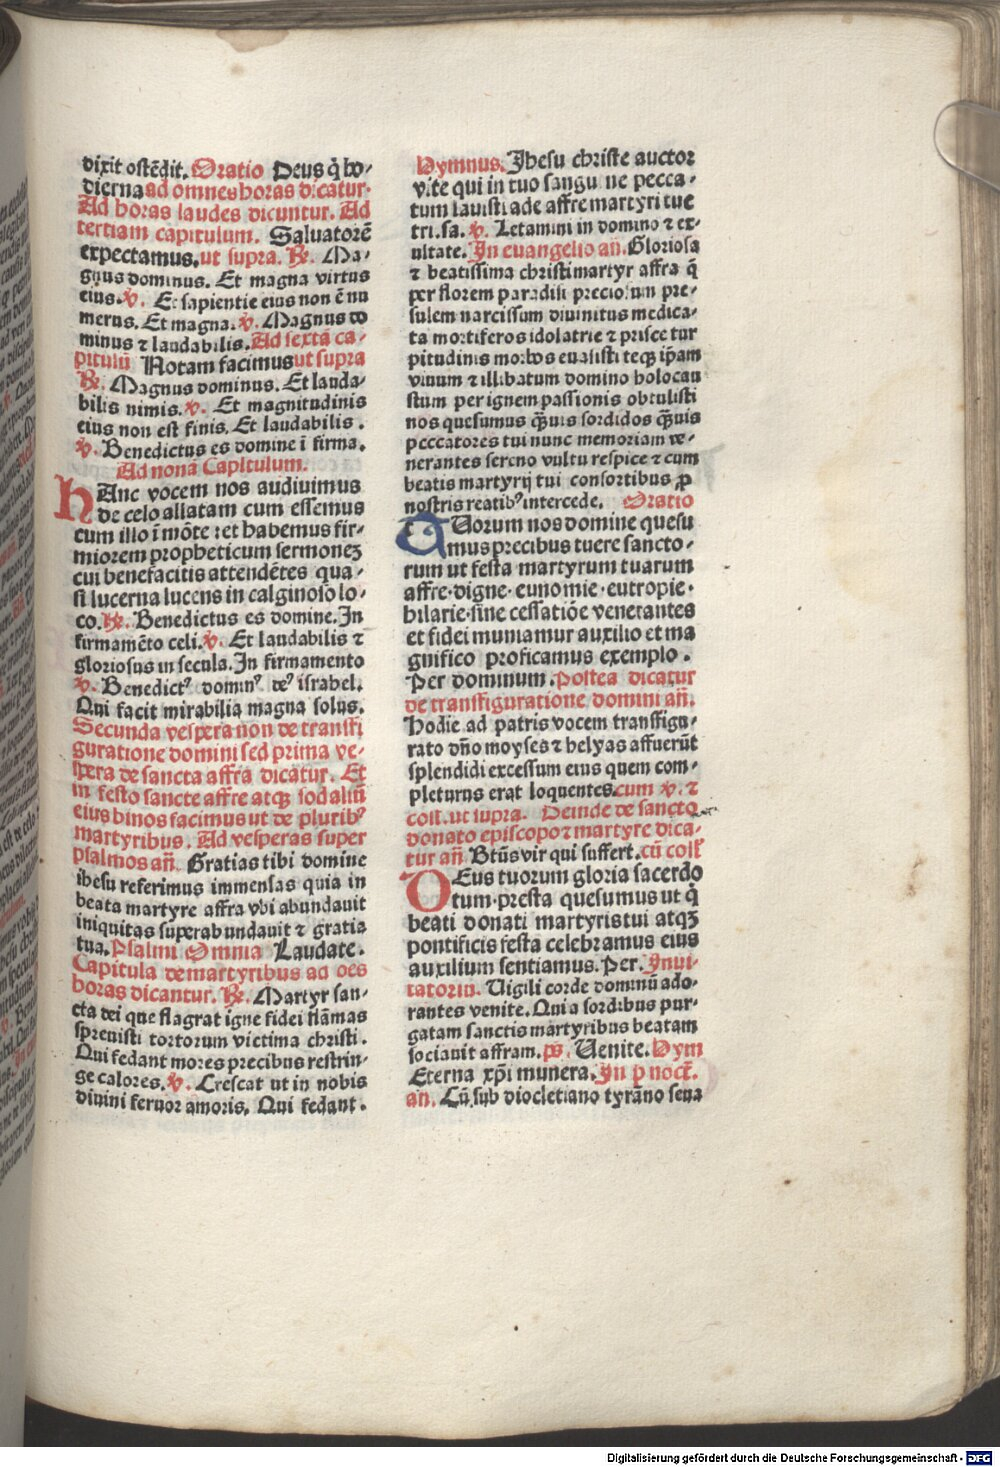 dixit ostēdit. Oratio Deus q̄ ho-
dierna ad omnes horas dicatur.
Ad horas laudes dicuntur. Ad
tertiam capitulum. Saluatorē
expectamus. ut supra. R. Ma-
gnus dominus. Et magna virtus
eius. v. Et sapientie eius non ē nu
merus. Et magna. v. Magnus do
minus ⁊ laudabilis. Ad sextā ca-
pitulū Notam facimus ut supra
R. Magnus dominus. Et lauda-
bilis nimis. v. Et magnitudinis
eius non est finis. Et laudabilis.
v. Benedictus es domine ī firma.
Ad nonā Capitulum.
hAnc vocem nos audiuimus
de celo allatam cum essemus
cum illo ī mōte: et habemus fir-
miorem propheticum sermonez
cui benefacitis attendētes qua-
si lucerna lucens in calginoso lo-
co. R. Benedictus es domine. In
firmamēto celi. v. Et laudabilis ⁊
gloriosus in secula. In firmamento
v. Benedictꝰ dominꝰ deꝰ israhel.
Qui facit mirabilia magna solus.
Secunda vespera non de transfi
guratione domini sed prima ve-
spera de sancta affra dicatur. Et
in festo sancte affre atqꝫ sodaliū
eius binos facimus ut de pluribꝰ
martyribus. Ad vesperas super
psalmos an̄. Gratias tibi domine
ihesu referimus immensas quia in
beata martyre affra vbi abundauit
iniquitas superabundauit ⁊ gratia
tua. Psalmi Omnia Laudate.
Capitula de martyribus ad oēs
horas dicantur. R. Martyr san-
cta dei que flagrat igne fidei flāmas
spreuisti tortorum victima christi.
Qui fedant mores precibus restrin-
ge calores. v. Crescat ut in nobis
diuini feruor amoris. Qui fedant.
Hymnus. Jhesu christe auctor
vite qui in tuo sanguine pecca-
tum lauisti ade affre martyri tue
tri. sa. v. Letamini in domino ⁊ ex-
ultate. In euangelio an̄. Gloriosa
⁊ beatissima christi martyr affra q̄
per florem paradisi preciosum pre-
sulem narcissum diuinitus medica-
ta mortiferos idolatrie ⁊ prisce tur
pitudinis morbos euasisti teqꝫ ip̄am
viuum ⁊ illibatum domino holocau
stum per ignem passionis obtulisti
nos quesumus q̄uis sordidos q̄uis
peccatores tui nunc memoriam ve-
nerantes sereno vultu respice ⁊ cum
beatis martyrij tui consortibus ꝓ
nostris reatibꝰ intercede. Oratio
QUorum nos domine quesu
mus precibus tuere sancto-
rum ut festa martyrum tuarum
affre· digne· eunomie· eutropie·
hilarie· sine cessatiōe venerantes
et fidei muniamur auxilio et ma
gnifico proficamus exemplo.
Per dominum. Postea dicatur
de transfiguratione domini an̄.
Hodie ad patris vocem transfigu-
rato dn̄o moyses ⁊ helyas affuerūt
splendidi excessum eius quem com-
pleturus erat loquentes. cum v. ⁊
coll. ut supra. Deinde de sancto
donato episcopo ⁊ martyre dica-
tur an̄ Btūs vir qui suffert. cū coll
DEus tuorum gloria sacerdo
tum· presta quesumus ut q̄
beati donati martyris tui atqꝫ
pontificis festa celebramus eius
auxilium sentiamus. Per. Inui-
tatoriū. Uigili corde dominū ado-
rantes venite. Qui a sordibus pur-
gatam sanctis martyribus beatam
sociauit affram. ps. Uenite. Hym
Eterna xp̄i munera. In p̄ noct̄.
an̄. Cū sub diocletiano tyrāno seua
Digitalisierung gefördert durch die Deutsche Forschungsgemeinschaft - DFG